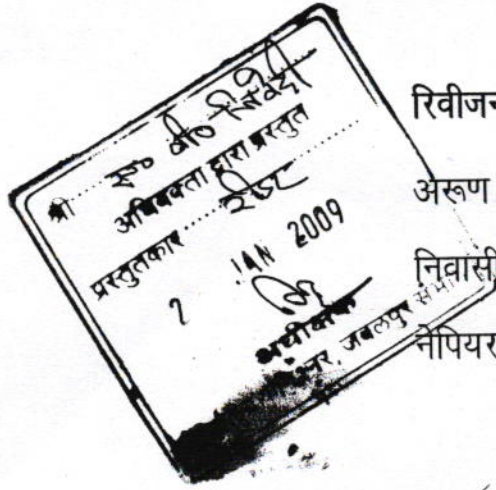 श्री एस० बी० त्रिवेदी
अधिवक्ता द्वारा प्रस्तुत
प्रस्तुतकार रीडर
JAN 2009
अधीक्षक
जबलपुर संभा
रिवीजन
अरूण
निवासी
नेपियर